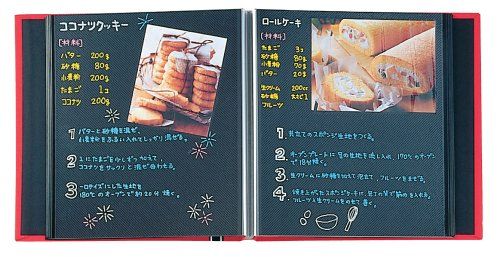 ココナツクッキー
[材料]
バター 200g
砂糖 80g
小麦粉 200g
たまご 1コ
ココナツ 200g
1 バターと砂糖を混ぜ、
小麦粉をふるい入れてしっかり混ぜる。
2 1にたまごを少しずつ加えて、
ココナツをサックリと混ぜ合わせる。
3 一口サイズにした生地を
180℃のオーブンで約20分焼く。
ロールケーキ
[材料]
たまご 3コ
砂糖 80g
小麦粉 70g
バター 20g
生クリーム 200cc
砂糖 大さじ1
フルーツ
1 共立てのスポンジ生地をつくる。
2 オーブンプレートに1の生地を流し入れ、170℃のオーブン
で15分焼く。
3 生クリームに砂糖を加えて泡立て、フルーツをまぜる。
4 焼き上がったスポンジケーキに、包丁の背で筋めを入れ、
フルーツと生クリームをのせて巻く。